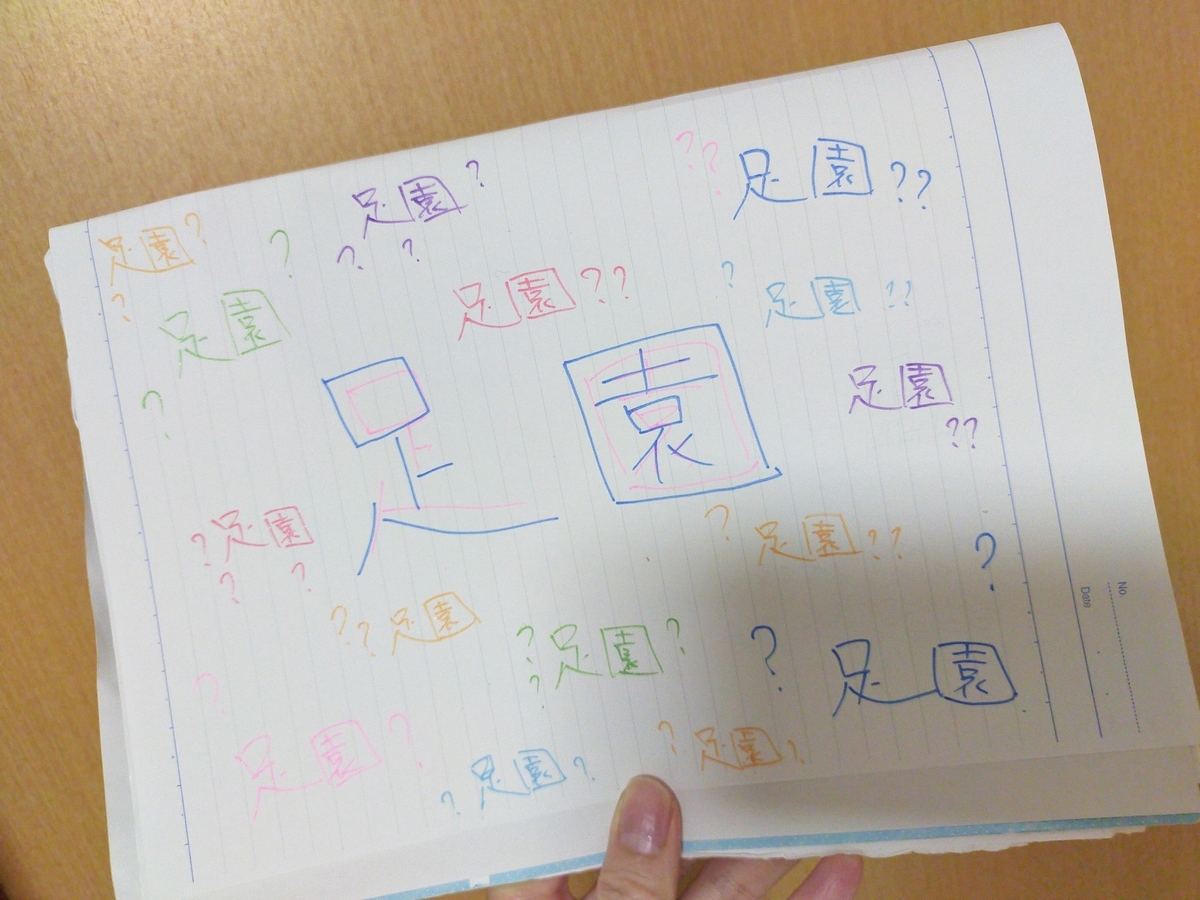 足園?
?
足園?
? ?
?? 足園??
足園
? ?
足園??
? 足園??
足園
足園
??
?足園
? ?
? 足園??
?
??足園
??足園?
? 足園
? 足園?
? 足園?
? 足園?
No.
Date